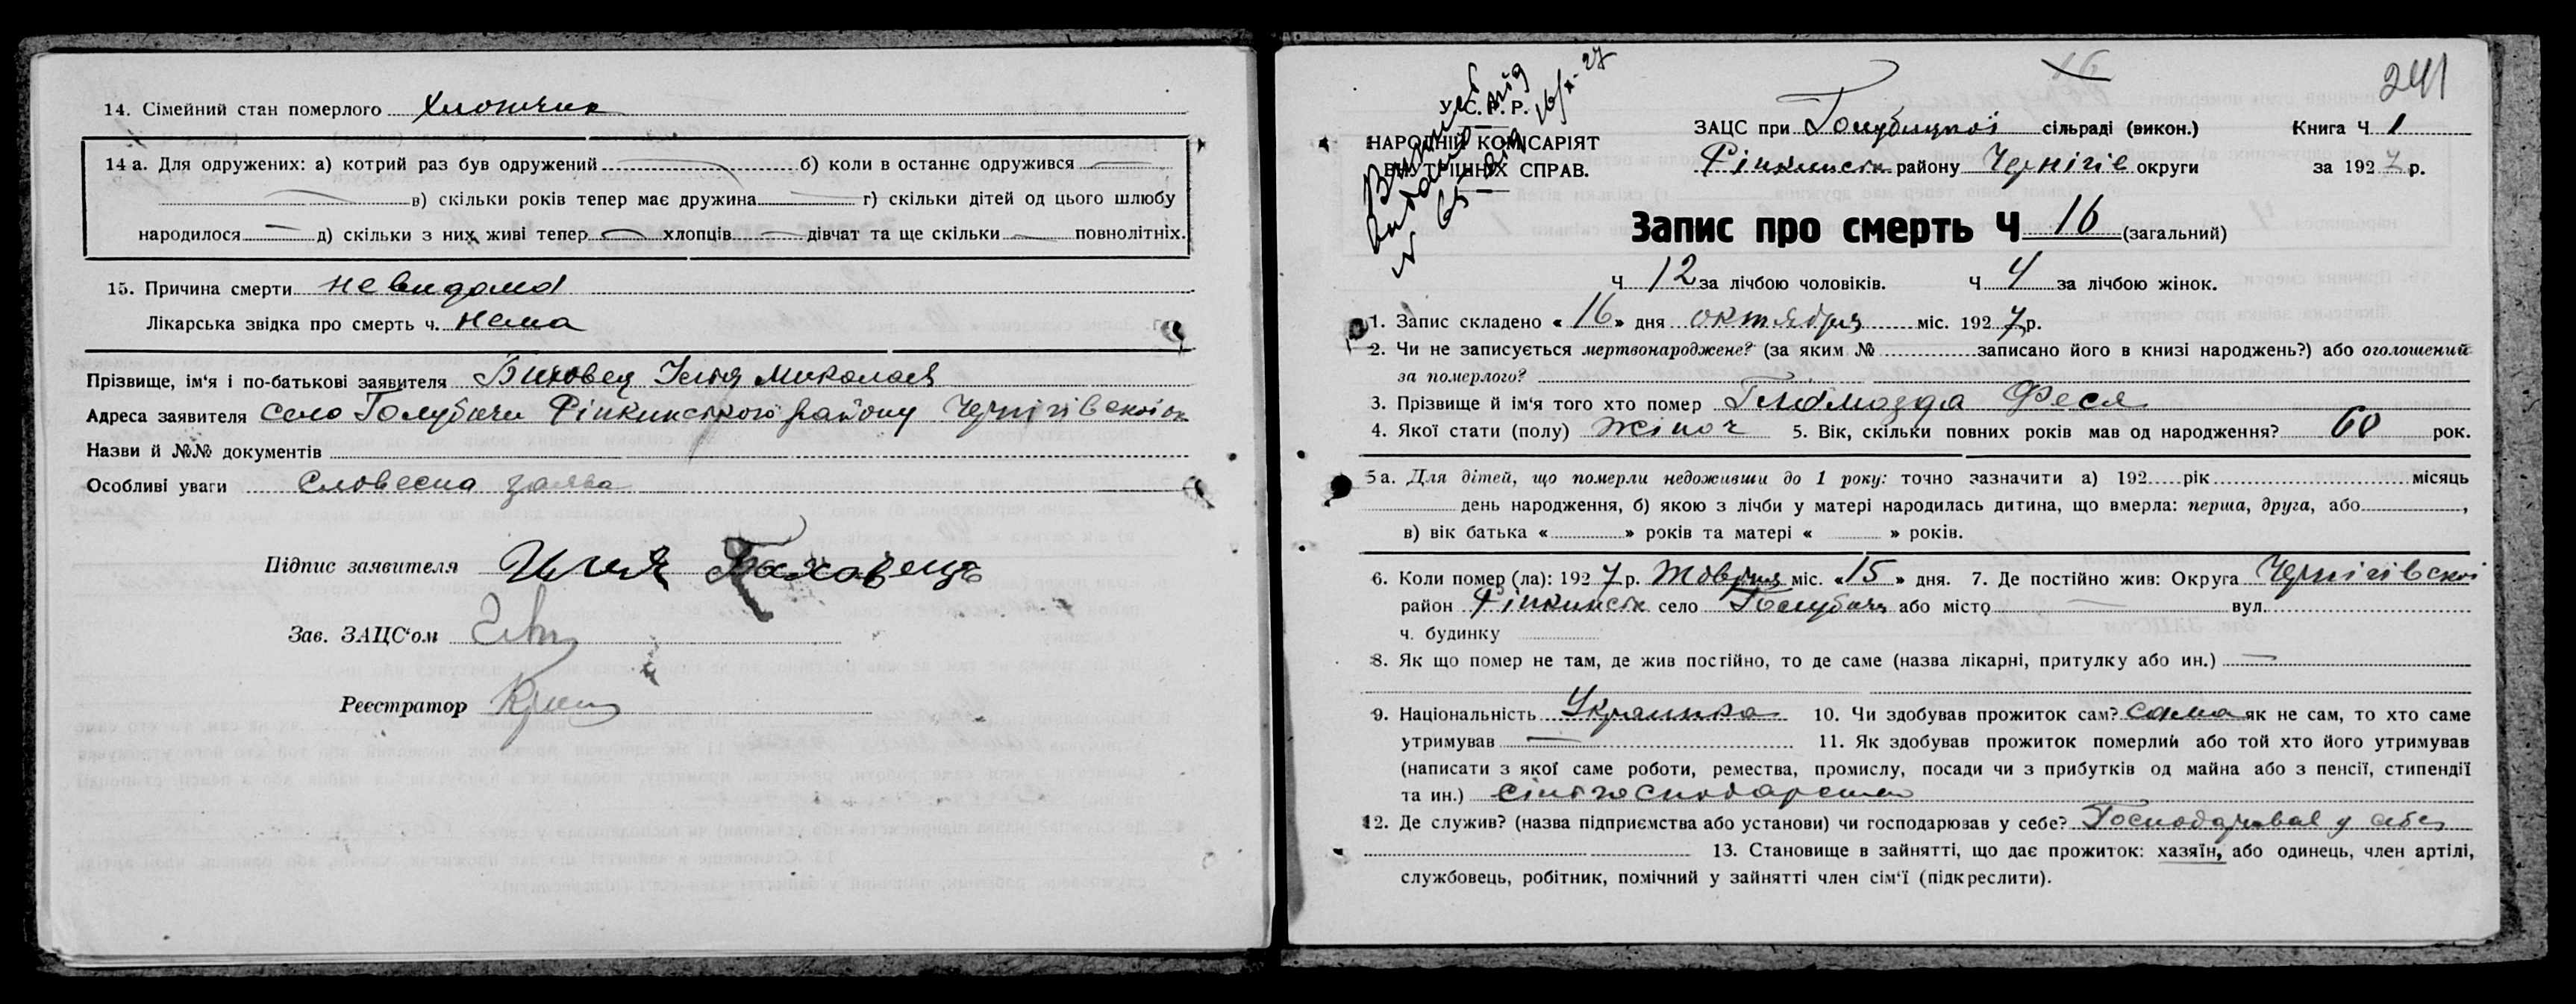 14. Сімейний стан померлого Хлопчик
14 а. Для одружених: а) котрий раз був одружений б) коли в останнє одружився
в) скільки років тепер має дружина г) скільки дітей од цього шлюбу
народилося д) скільки з них живі тепер хлопців дівчат та ще скільки повнолітніх.
15. Причина смерти невидома
Лікарська звідка про смерть ч. нема
Прізвище, ім'я і по-батькові заявителя Ілія Миколаєв
Адреса заявителя село Голубичи Ріпкинського району Чернігівскої ок
Назви й №№ документів
Особливі уваги Словесна заява
Підпис заявителя Илия
Зав. ЗАЦС'ом
Реєстратор
16
241
У. С. Р. Р.
НАРОДНІЙ КОМІСАРІЯТ
ВНУТРІШНІХ СПРАВ.
№ 65 від 16/X-27
ЗАЦС при Голубицкої сільраді (викон.) Книга Ч 1
Ріпкинськ району Чернігів округи за 1927 р.
Запис про смерть Ч 16 (загальний)
Ч 12 за лічбою чоловіків. Ч 4 за лічбою жінок.
1. Запис складено « 16 » дня октября міс. 1927 р.
2. Чи не записується мертвонароджене? (за яким № записано його в книзі народжень?) або оголошений
за померлого?
3. Прізвище й ім'я того хто помер Феся
4. Якої стати (полу) Жіноч 5. Вік, скільки повних років мав од народження? 60 рок.
5 а. Для дітей, що померли недоживши до 1 року: точно зазначити а) 192 рік місяць
день народження, б) якою з лічби у матері народилась дитина, що вмерла: перша, друга, або ,
в) вік батька « » років та матері « » років.
6. Коли помер (ла): 1927 р. Жовтня міс. « 15 » дня. 7. Де постійно жив: Округа Чернігівскої
район Ріпкинськ село Голубичи або місто вул.
ч. будинку
8. Як що помер не там, де жив постійно, то де саме (назва лікарні, притулку або ин.)
9. Національність Украинка 10. Чи здобував прожиток сам? сама як не сам, то хто саме
утримував 11. Як здобував прожиток померлий або той хто його утримував
(написати з якої саме роботи, ремества, промислу, посади чи з прибутків од майна або з пенсії, стипендії
та ин.)
12. Де служив? (назва підприємства або установи) чи господарював у себе? Господарував у себе
13. Становище в зайнятті, що дає прожиток: хазяїн, або одинець, член артілі,
службовець, робітник, помічний у зайнятті член сім'ї (підкреслити).